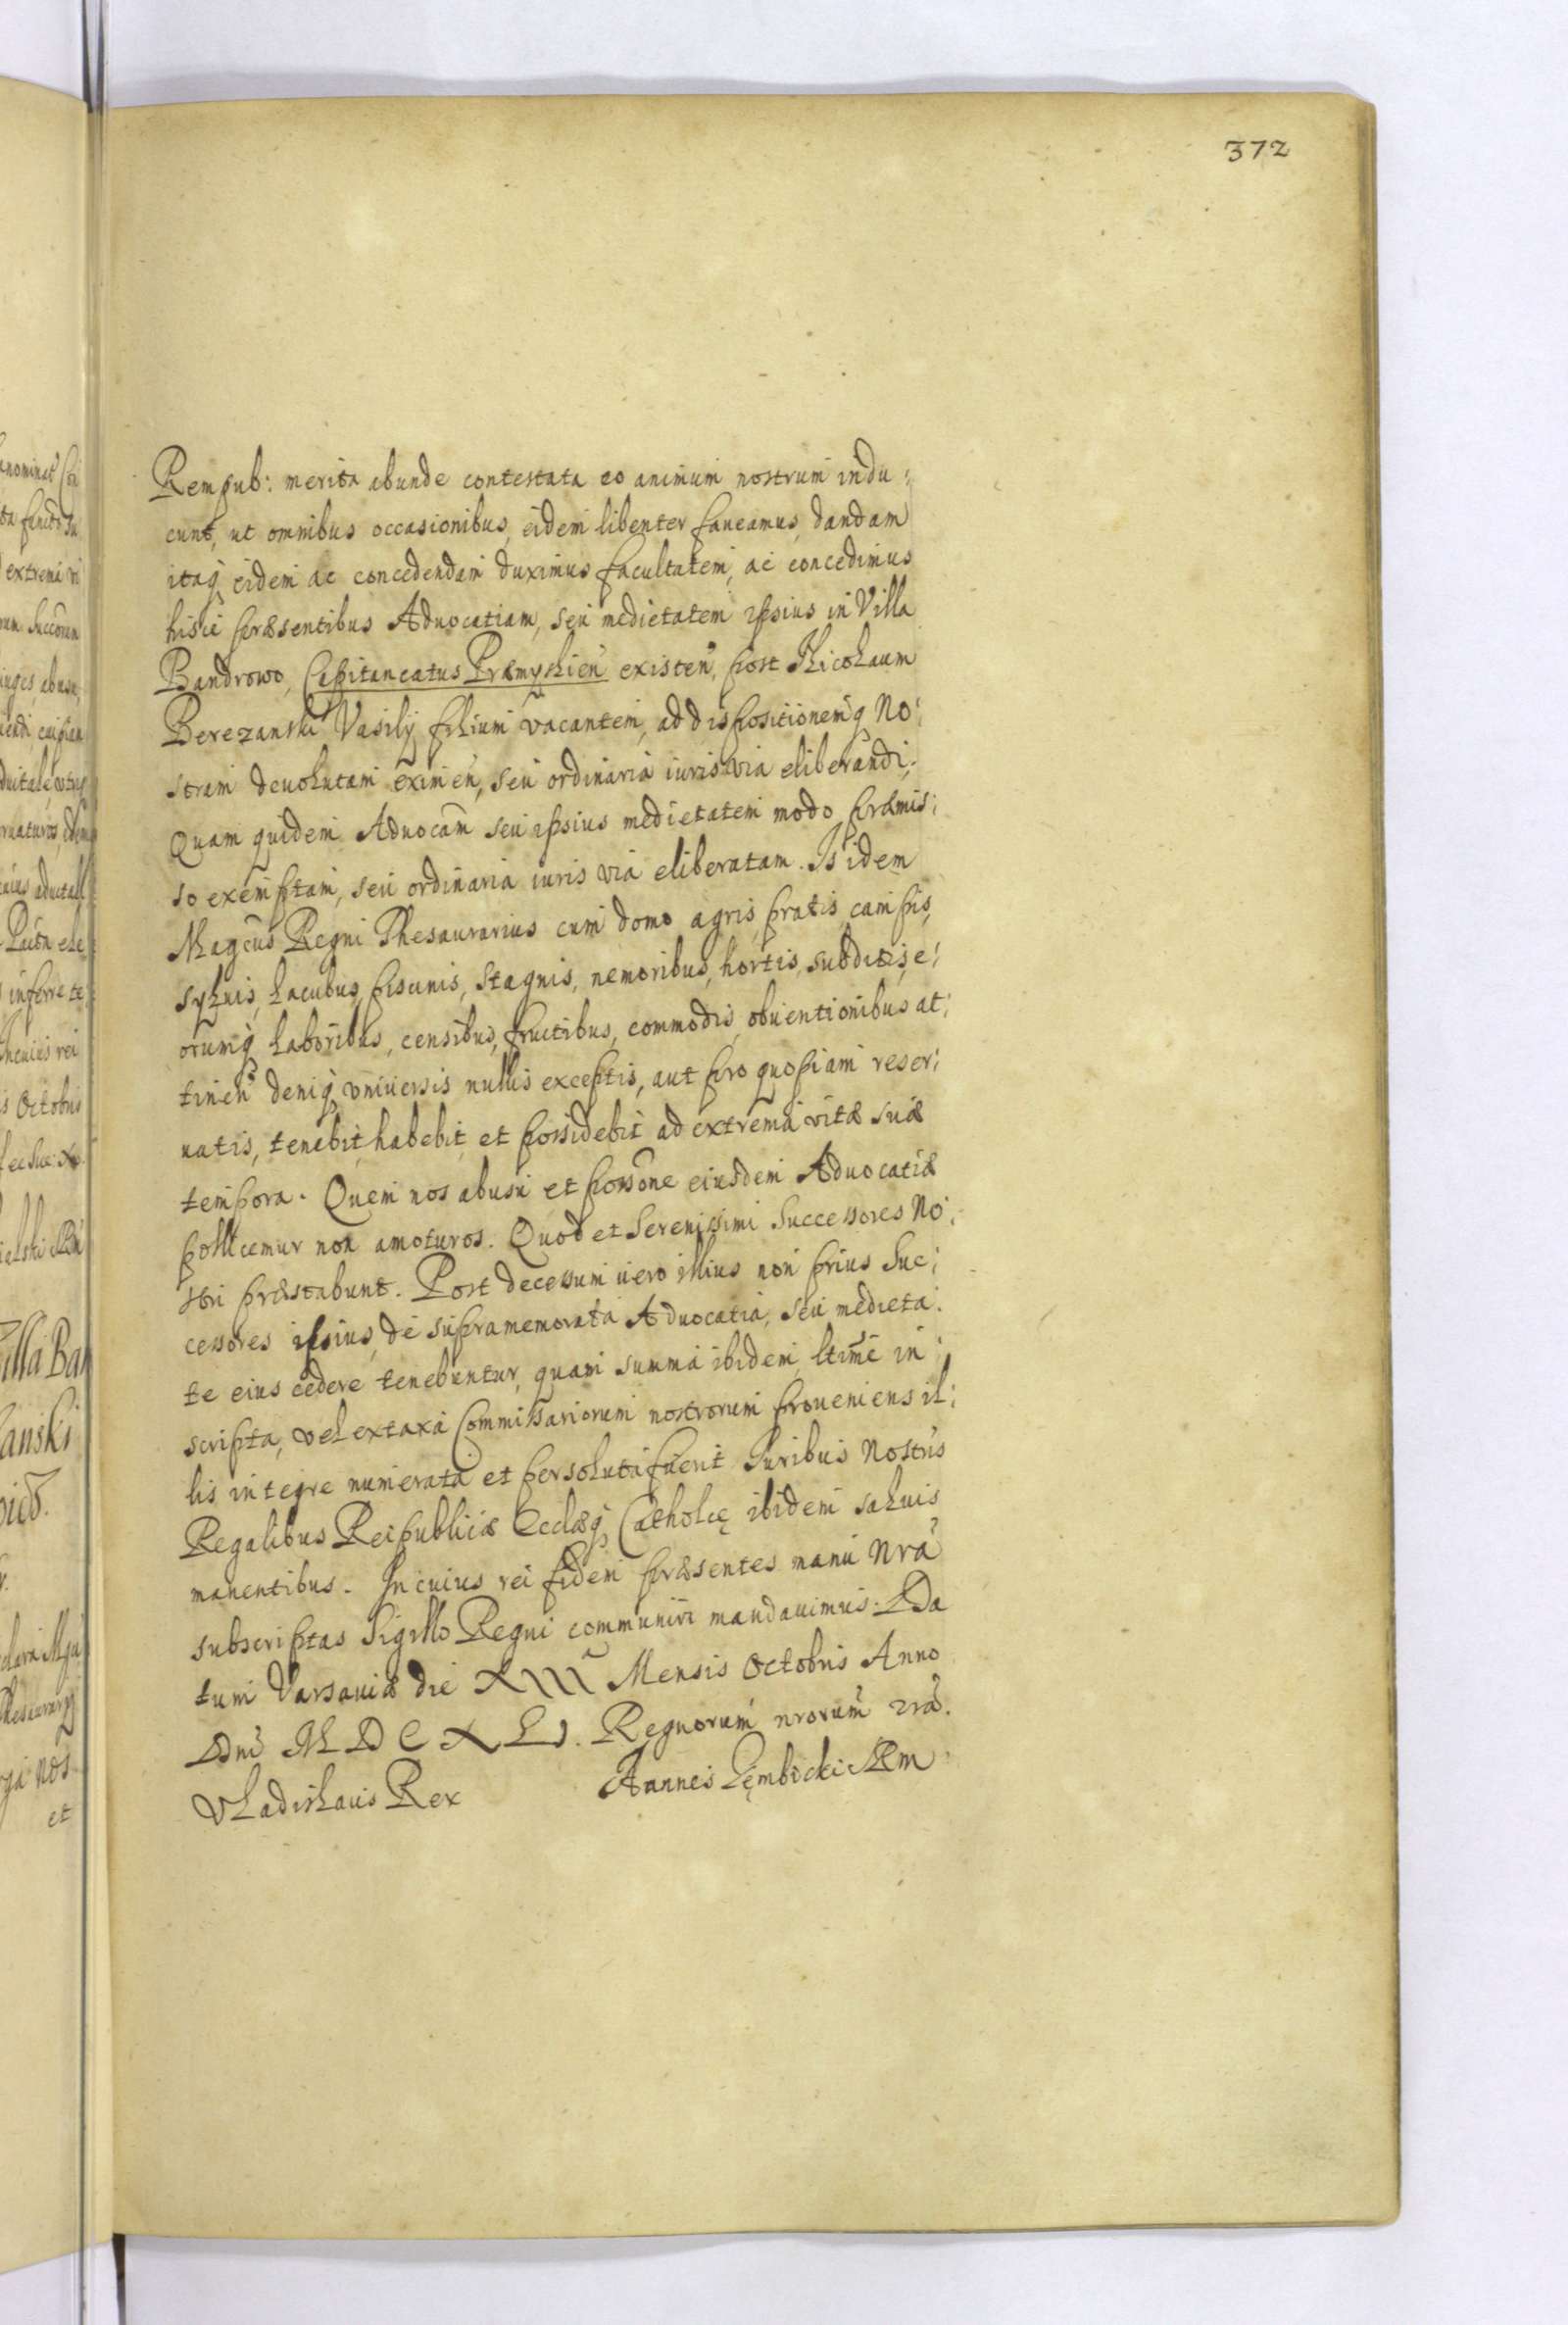 372
Rempub: merita abunde contestata eo animum nostrum indu:
cunt, ut omnibus occasionibus, eidem libenter faueamus, dandam
itaq eidem ac concedendam duximus facultatem, ac concedimus
hisce præsentibus Aduocatiam, seu medietatem ipsius in Villa
Bandrowo, Capitaneatus Præmyslien existen, post Nicolaum
Berezanski Vasilij filium vacantem, ad dispositionemq No:
stram deuolutam eximen, seu ordinaria iuris via eliberandi;
Quam quidem Aduocam seu ipsius medietatem modo præmis:
so exemptam, seu ordinaria iuris via eliberatam. Is idem
Magcus Regni Thesaurarius cum domo agris, pratis, campis,
syluis, lacubus, piscinis, stagnis, nemoribus, hortis, subditis, e:
orumq laboribus, censibus, fructibus, commodis, obuentionibus at:
tinen deniq vniuersis nullis exceptis, aut pro quopiam reser:
uatis, tenebit, habebit, et possidebit ad extrema vitæ suæ
tempora. Quem nos ab usu et possone eiusdem Aduocatiæ
pollicemur non amoturos. Quod et Serenissimi Successores No:
stri præstabunt. Post decessum uero illius non prius Suc:
cessores ipsius, de supramemorata Aduocatia, seu medieta:
te eius cedere tenebuntur, quam summa ibidem ltime in:
scripta, vel ex taxa Commissariorum nostrorum proueniens il:
lis integre numerata et persoluta fuerit Iuribus Nostris
Regalibus Reipublicæ Ecclæq Catholcę ibidem saluis
manentibus. In cuius rei fidem præsentes manu Nra
subscriptas Sigillo Regni communiri mandauimus. Da
tum Varsauiæ die XIII Mensis Octobris Anno
Dni M D C X L I. Regnorum nrorum
Vladislaus Rex